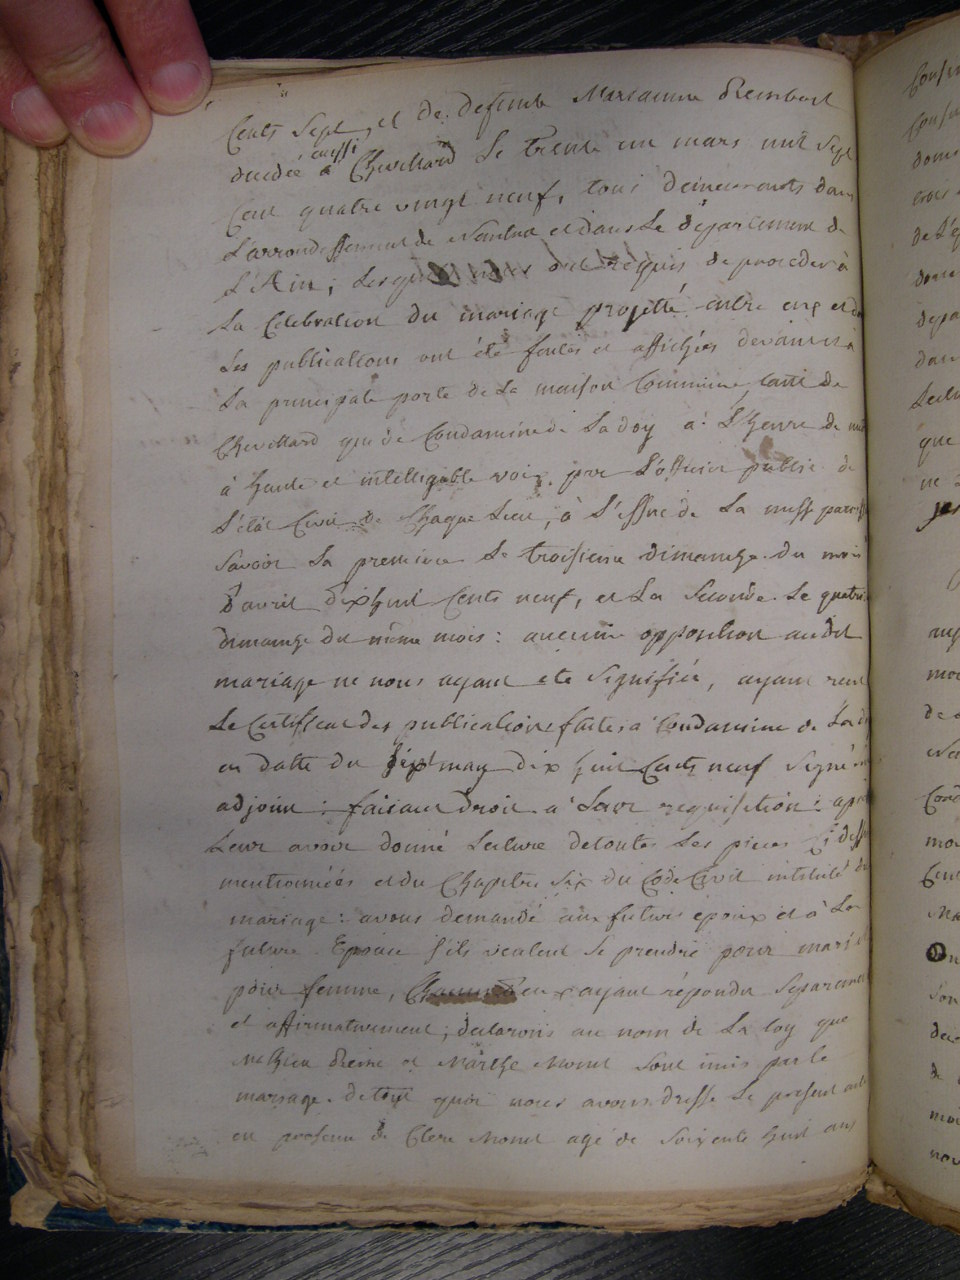 Cents Sept, et de defunte Marianne Rembert
decedée aussi à Chevillard Le trente un mars mil Sept
Cent quatre vingt neuf, tous demeurants dans
L'arrondissement de Nantua et dans Le departement de
L'Ain, Lesquels nous ont requis de proceder à
La Celebration du mariage projetté entre eux et dont
Les publications ont été faites et affichées devant
La principale porte de La maison Commune tant de
Chevillard que de Condamine de Ladoy à L'heure de midi
à haute et intelligible voix par L'officier public de
L'état Civil de Chaque Lieu, à L'issue de La messe
Savoir La premiere Le troisieme dimanche du mois
D'avril dix huit Cents neuf, et La Seconde Le
dimanche du même mois : aucune opposition audit
mariage ne nous ayant eté Signifiée, ayant
Le Certificat des publications faites a Condamine de
en datte du may dix huit Cents neuf Signé
adjoint : faisant droit à Leur requisition :
Leur avoir donné Lecture de toutes Les pieces Ci
mentionnées et du Chapitre Six du Code Civil intitulé du
mariage : avons demandé au futur epoux et à La
future Epouse s'ils veulent Se prendre pour mari et
pour femme, ayant répondu Separement
et affirmativement, declarons au nom de La loy que
et Marthe Monet Sont unis par le
mariage. de tout quoi nous avons dressé Le present acte
en presence de Monet agé de Soixante huit ans